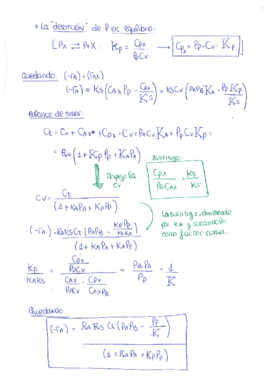 x La "desorción" de P en equilibrio:
[Px ⇌ P+X : Kp = Cpx / PpCv → Cpx = Pp·Cv·Kp
Quedando: (-rA) = (rAA)
(-rA) = KS (CAx PB - Cpx / KS) = KSCv (PAPB KA - Pp Kp / KS)
Balance de sitios:
Ct = Cv + CAx + Cpx = Cv + PACv KA + Pp Cv Kp =
= Cv (1 + Kp Pp + KAPA)
Despejo la Cv
Sustituyo
Cpx / PBCAx = KS
Cv = Ct / (1 + KAPA + KpPp)
(-rA) = KAKSCt (PAPB - KpPp / KSKA) / (1 + KAPA + KpPp)
La sustituyo, dividiendo
por KA y sacandola
como factor comun.
Kp / KAKS = Cpx / PpCv / CAx / PACv · Cpx / CAxPB = PBPA / Pp = 1 / K
Quedando:
(-rA) = KAKSCt (PAPB - Pp / K) / (1 + KAPA + KpPp)